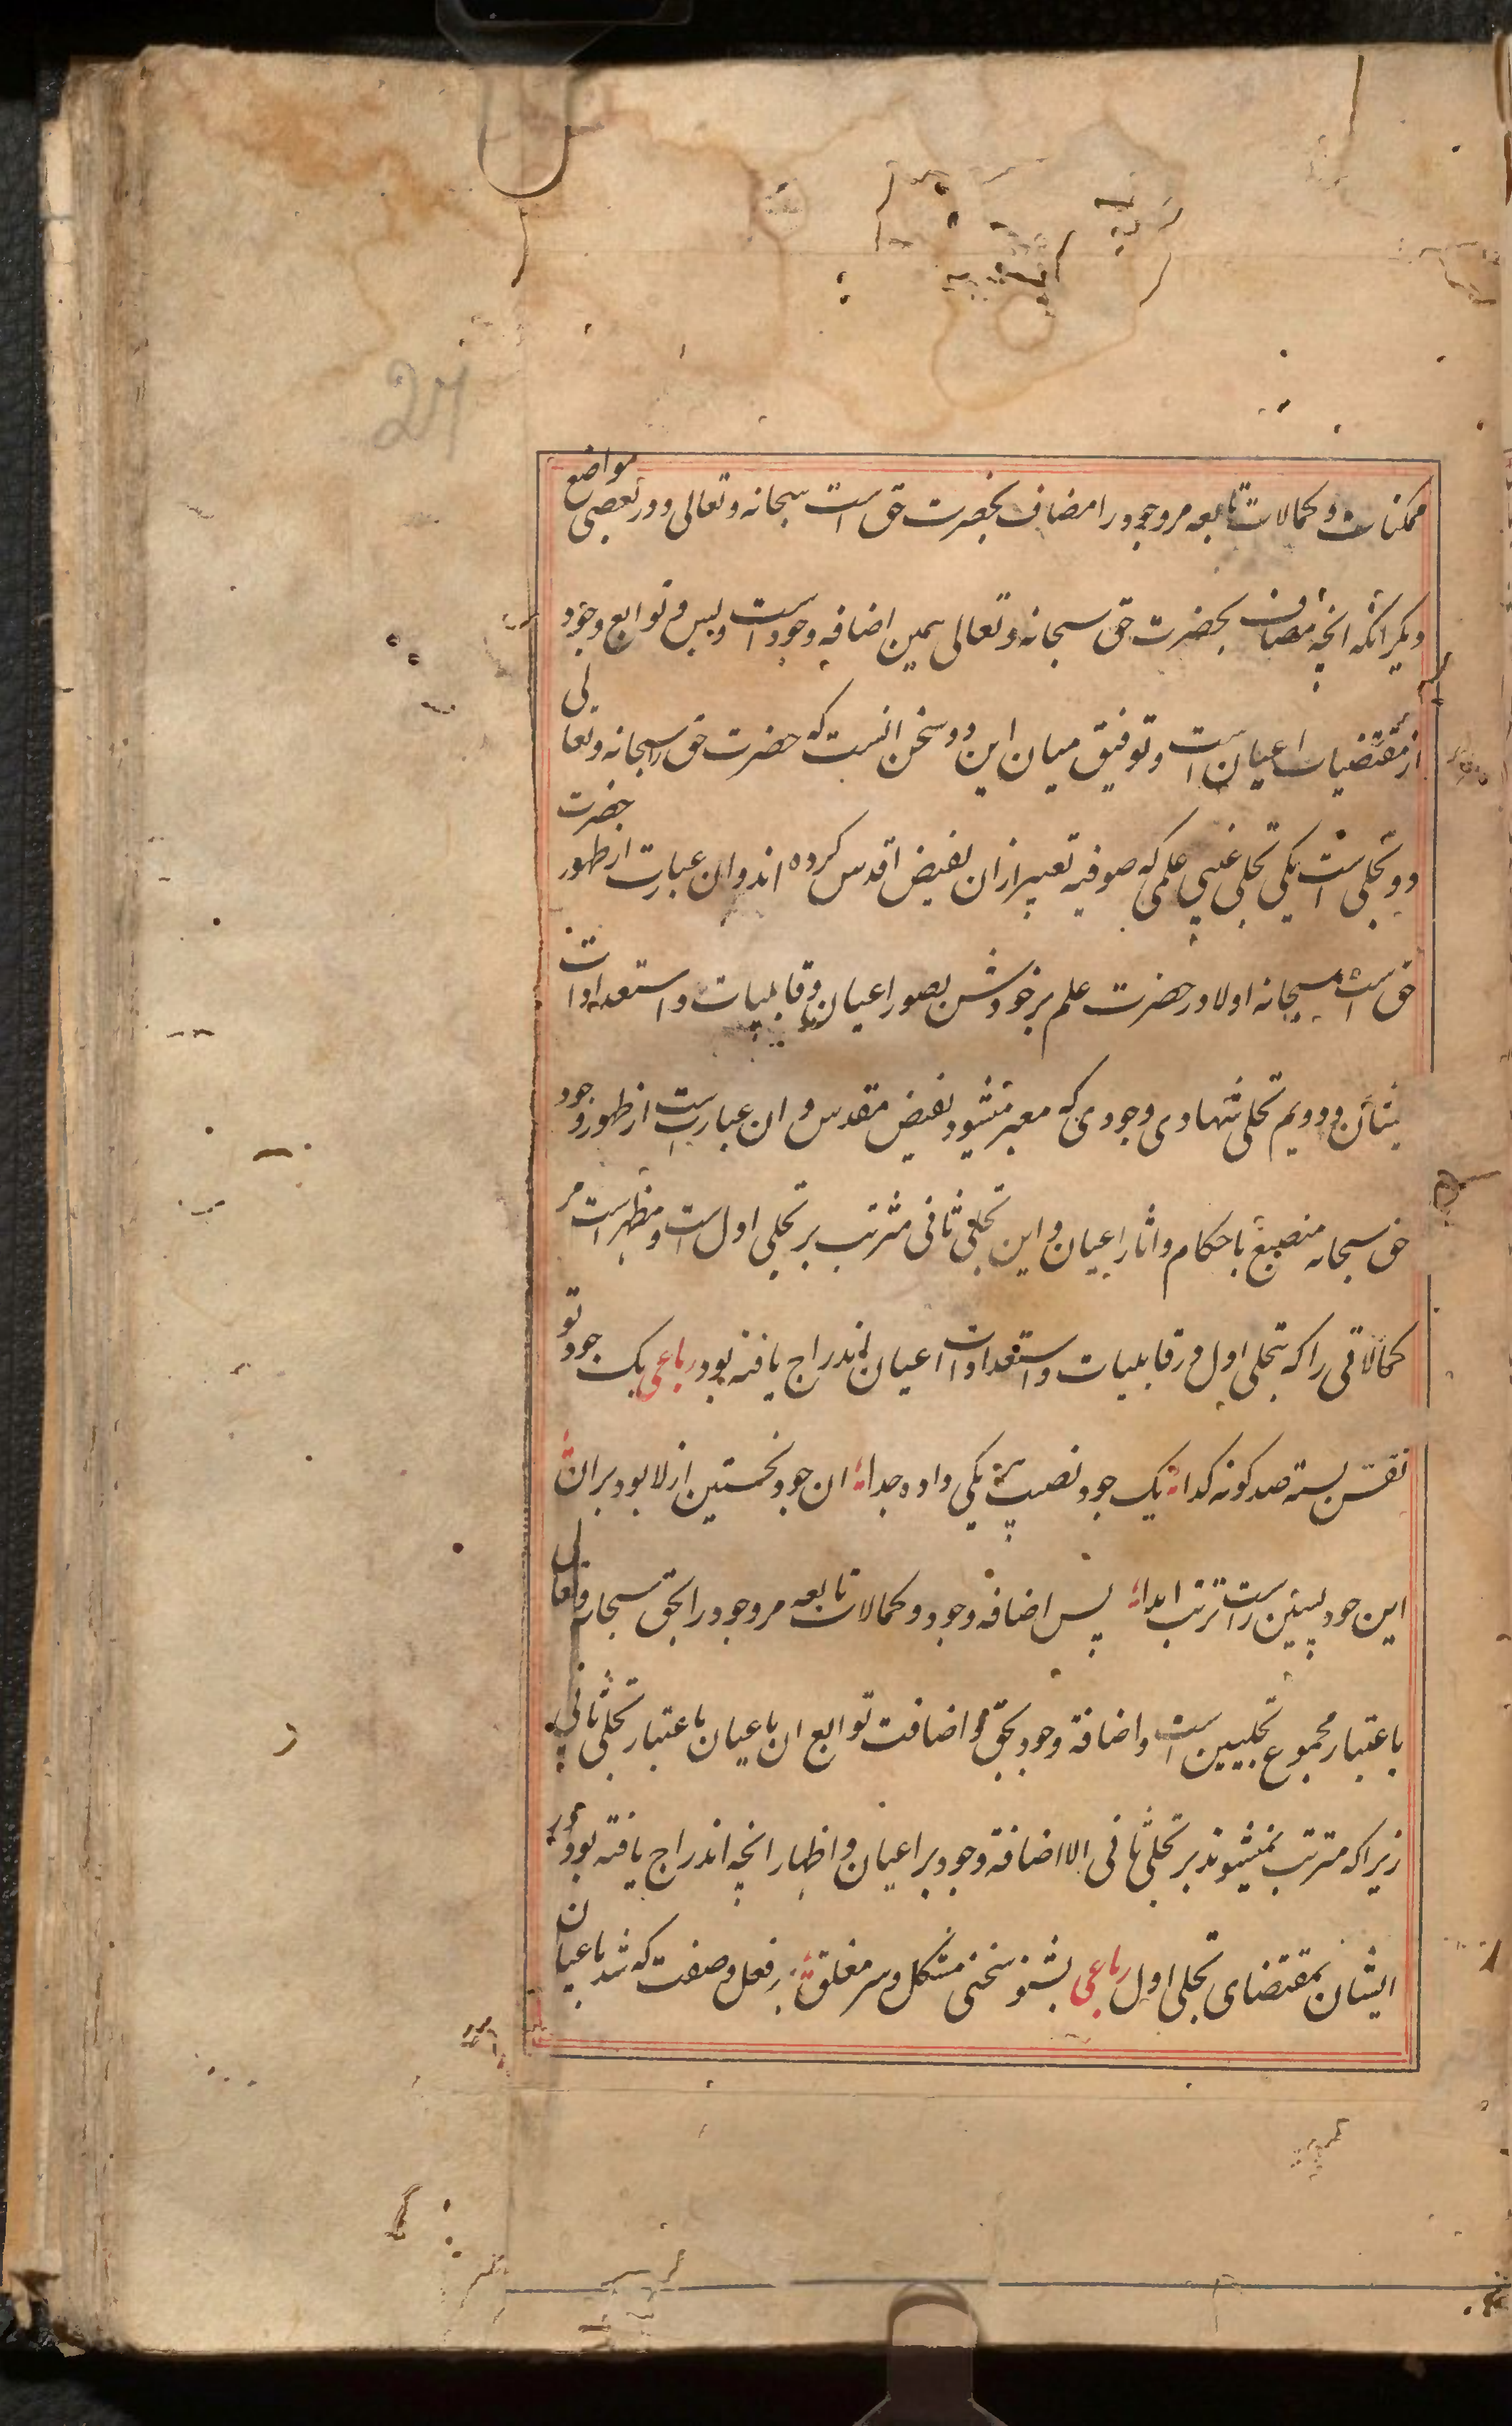 24
ممکنات و کمالات تابعه مر وجود را مضاف بحضرت حق است سبحانه و تعالی و در بعضی مواضع
دیگر انکه انچه مضاف بحضرت حق سبحانه و تعالی همین اضافه وجود است و بس و توابع وجود
از مقتضیات اعیان است و توفیق میان این دو سخن انست که حضرت حق را سبحانه و تعالی
دو تجلی است یکی تجلی غیبی علمی که صوفیه تعبیر ازان بفیض اقدس کرده اند و ان عبارت از ظهور حضرت
حق است سبحانه اولا در حضرت علم بر خودش بصور اعیان و قابلیات و استعدادات
ایشان و دویم تجلی شهادی وجودی که معبر میشود بفیض مقدس و ان عبارت است از ظهور وجود
حق سبحانه منصبغ باحکام و اثار اعیان و این تجلی ثانی مترتب بر تجلی اول است و مظهر است مر
کمالاتی را که بتجلی اول در قابلیات و استعدادات اعیان اندراج یافته بود رباعی یک جود تو
نقش بسته صد کونه کدا یک جود نصیب هر یکی داده جدا ان جود نخستین ازلا بود بران
این جود پسین راست ترتب ابدا پس اضافه وجود و کمالات تابعه مر وجود را بحق سبحانه و تعالی
باعتبار مجموع تجلیین است و اضافة وجود بحق و اضافت توابع ان باعیان باعتبار تجلی ثانی
زیرا که مترتب نمیشوند بر تجلی ثانی الا اضافة وجود بر اعیان و اظهار انچه اندراج یافته بود در
ایشان بمقتضای تجلی اول رباعی بشنو سخنی مشکل و سر مغلق هر فعل و صفت که شد باعیان